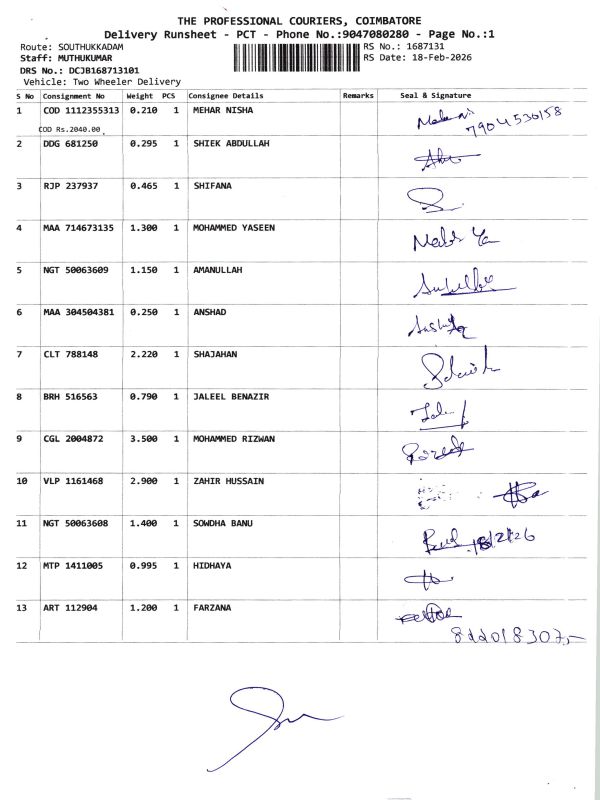 THE PROFESSIONAL COURIERS, COIMBATORE
Delivery Runsheet - PCT - Phone No.:9047080280 - Page No.:1
Route: SOUTHUKKADAM RS No.: 1687131
Staff: MUTHUKUMAR RS Date: 18-Feb-2026
DRS No.: DCJB168713101
Vehicle: Two Wheeler Delivery
S No Consignment No Weight PCS Consignee Details Remarks Seal & Signature
1 COD 1112355313 0.210 1 MEHAR NISHA
7904536158
COD Rs.2040.00
2 DDG 681250 0.295 1 SHIEK ABDULLAH
3 RJP 237937 0.465 1 SHIFANA
4 MAA 714673135 1.300 1 MOHAMMED YASEEN
5 NGT 50063609 1.150 1 AMANULLAH
6 MAA 304504381 0.250 1 ANSHAD
7 CLT 788148 2.220 1 SHAJAHAN
8 BRH 516563 0.790 1 JALEEL BENAZIR
9 CGL 2004872 3.500 1 MOHAMMED RIZWAN
10 VLP 1161468 2.900 1 ZAHIR HUSSAIN
11 NGT 50063608 1.400 1 SOWDHA BANU
18/2/26
12 MTP 1411005 0.995 1 HIDHAYA
13 ART 112904 1.200 1 FARZANA